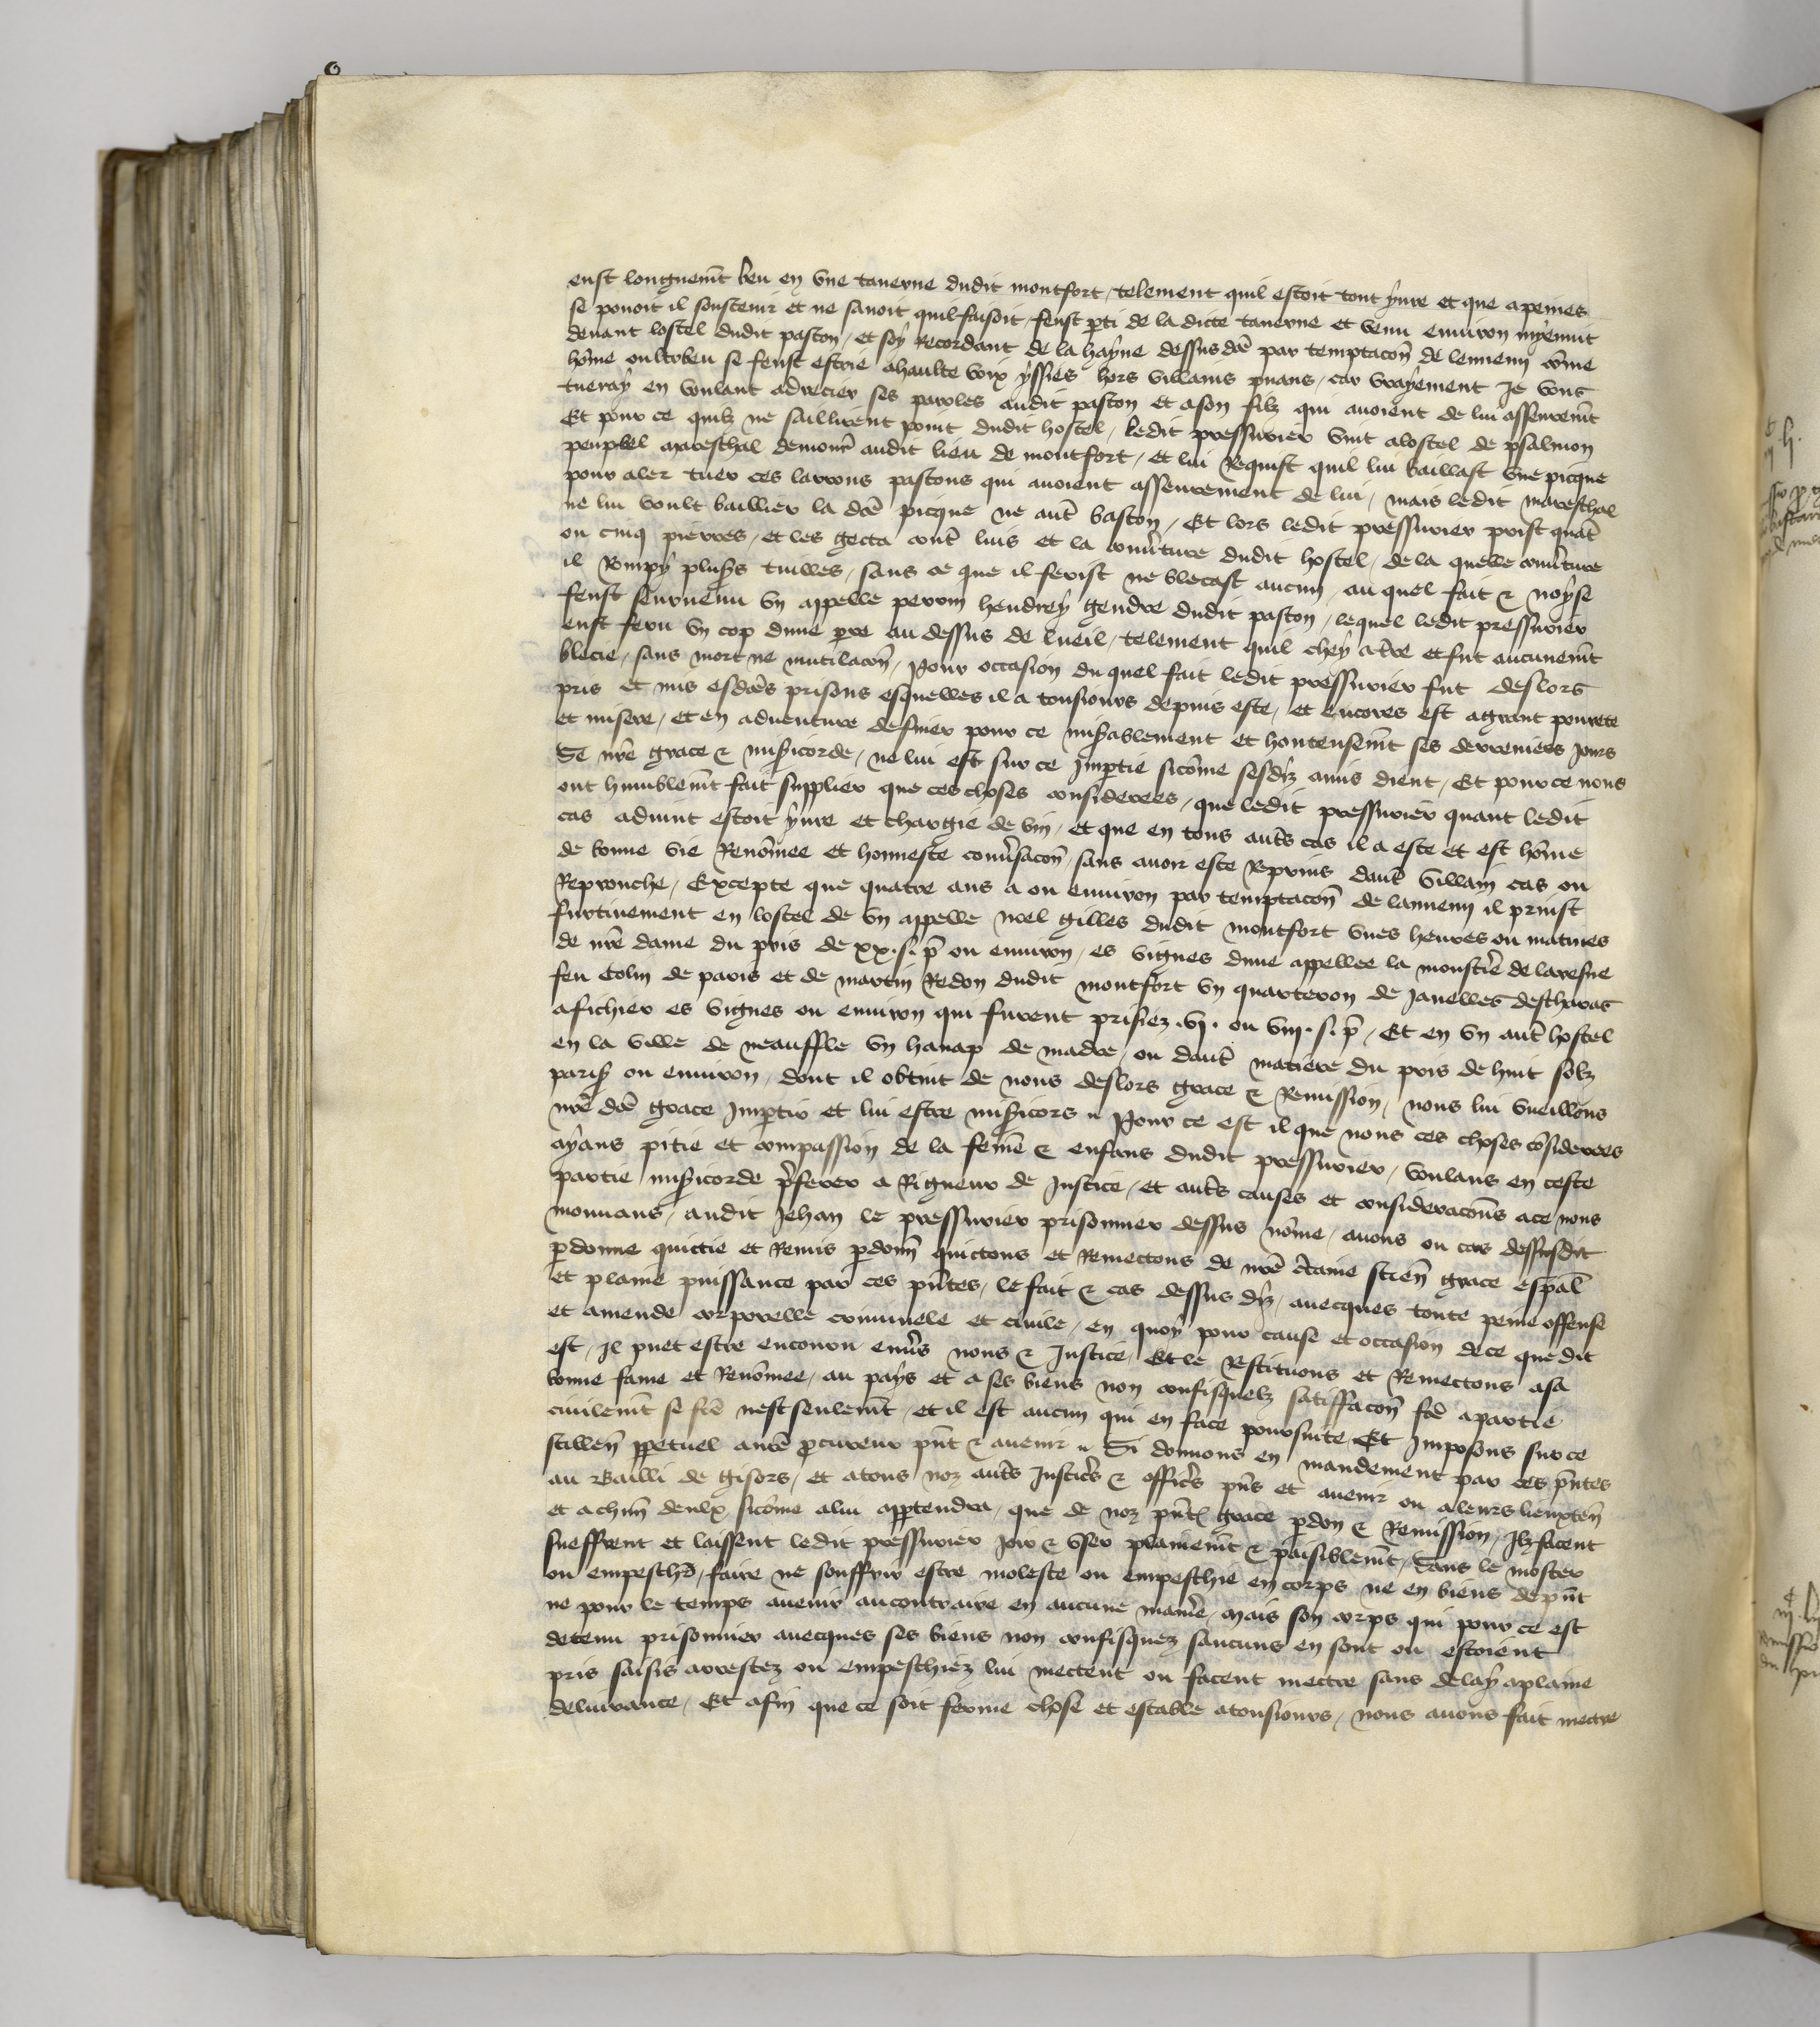 eust longuem̃t beu en vne tauerne dudit montfort / telement quil estoit tout ẏure et que apeines
se pouoit il soustenir et ne sauoit quil faisoit / feust ꝑti de la dicte tauerne et venu enuiron mẏenuit
deuant lostel dudit paston / et soẏ Recordant de la haẏne dessusdc̃e par temptacoñ de lennemj cõme
hõme oultrbeu se feust escrie ahaulte voix ẏssies hors villains puans / car vraẏement Je vous
tueraẏ en voulant adrecier ses paroles audit paston et ason filz qui auoient de lui asseurem̃t
Et pour ce quilz ne saillirent point dudit hostel / ledit pressurier vint alostel de psalmon
peuplel mareschal demour̃ audit lieu de montfort / et lui Requist quil lui baillast vne picque
pour aler tuer ces larrons pastons qui auoient asseurement de lui / mais ledit mareschal
ne lui voult baillier la dc̃e picque ne aut̃ baston / Et lors ledit pressurier prist quat̃
ou cinq pierres / et les gecta cont̃ luis et la couũture dudit hostel / de la quelle couũture
il Rompẏ plus̃s tuilles / sans ce que il ferist ne blecast aucun / au quel fait & noẏse
feust seuruenu vn appelle perrin hendreẏ gendre dudit paston / lequel ledit pressurier
eust feru vn cop dune pr̃e au dessus de lueil / telement quil cheẏ at̃re et fut aucunem̃t
blecie / sans mort ne mutilacoñ / Pour occasion du quel fait ledit pressurier fut deslors
pris et mis esdc̃es prisons esquelles il a tousiours depuis este / et encores est agrant pourete
et misere / et en aduenture definer pour ce mis̃ablement et honteusem̃t ses derreniers jours
Se nr̃e grace & mis̃icorde / ne lui est sur ce Impartie sicõme sesdiz amis dient / Et pour ce nous
ont humblem̃t fait supplier que ces choses considerees / que ledit pressurier quant ledit
cas aduint estoit ẏure et chargie de vin / et que en tous aut̃s cas il a este et est hõme
de bonne vie Renõmee et honneste conũsacoñ / sans auoir este Reprins daut̃ villain cas ou
Reprouche / Excepte que quatre ans a ou enuiron par temptacoñ de lannemj il prinst
furtiuement en lostel de vn appelle noel gilles dudit montfort vnes heures ou matines
de nr̃e dame du pris de xx. s. p̃ ou enuiron / es vignes dune appellee la monstier̃ de laresne
feu Colin de paris et de martin Redon dudit montfort vn quarteron de Jauelles descharas
afichier es vignes ou enuiron qui furent prisiez .vj. ou viij. s. p̃ / Et en vn aut̃ hostel
en la ville de neauffle vn hanap de madre / ou daut̃ matiere du pris de huit solz
paris̃ ou enuiron / dont il obtint de nous deslors grace & Remission / nous lui vueillons
nr̃e dc̃e grace Impartir et lui estre mis̃icors // Pour ce est il que nous ces choses cõsiderees
aẏans pitie et compassion de la fem̃e & enfans dudit pressurier / voulans en ceste
partie mis̃icorde p̃ferer a Rigueur de Justice / et aut̃s causes et consideracoñs ace nous
mouuans / audit Jehan le pressurier prisonnier dessus nõme / auons ou cas dessusdit
ꝑdonne quictie et Remis ꝑdonñ quictons et Remectons de nr̃e c̃taine scien̄ grace esp̃al
et plaine puissance par ces pñtes / le fait & cas dessus diz / auecques toute peine offense
et amende corporelle criminele et ciuile / en quoẏ pour cause et occasion de ce que dit
est / Il puet estre encouru enũs nous & Justice / Et le Restituons et Remectons asa
bonne fame et Renõmee / au paẏs et a ses biens non confisquelz satiffacoñ fc̃e apartie
ciuilem̃t se fc̃e nest seulem̃t / et il est aucun qui en face poursuite / Et Imposons sur ce
scillen̄ ꝑpetuel anr̃e ꝓcureur pñt & auenir // Si donnons en mandement par ces pñtes
au Bailli de gisors / et atous noz aut̃s Justicrs̃ & officrs̃ pñs et auenir ou aleurs lieuxten̄
et achũn deulx sicõme alui appartendra / que de noz pñt grace ꝑdon & Remission / Ilz facent
sueffrent et laissent ledit pressurier joir & vser plainem̃t & paisiblem̃t / Sans le molester
ou empesch̃ / faire ne souffrir estre moleste ou empeschie en corps ne en biens de pñt
ne pour le temps auenir aucontraire en aucune manier̃ / mais son corps qui pour ce est
detenu prisonnier auecques ses biens non confisquez saucuns en sont ou estoient
pris saisis arrestez ou empeschiez lui mectent ou facent mectre sans delaẏ aplaine
deliurance / Et afin que ce soit ferme chose et estable atousiours / nous auons fait mectre